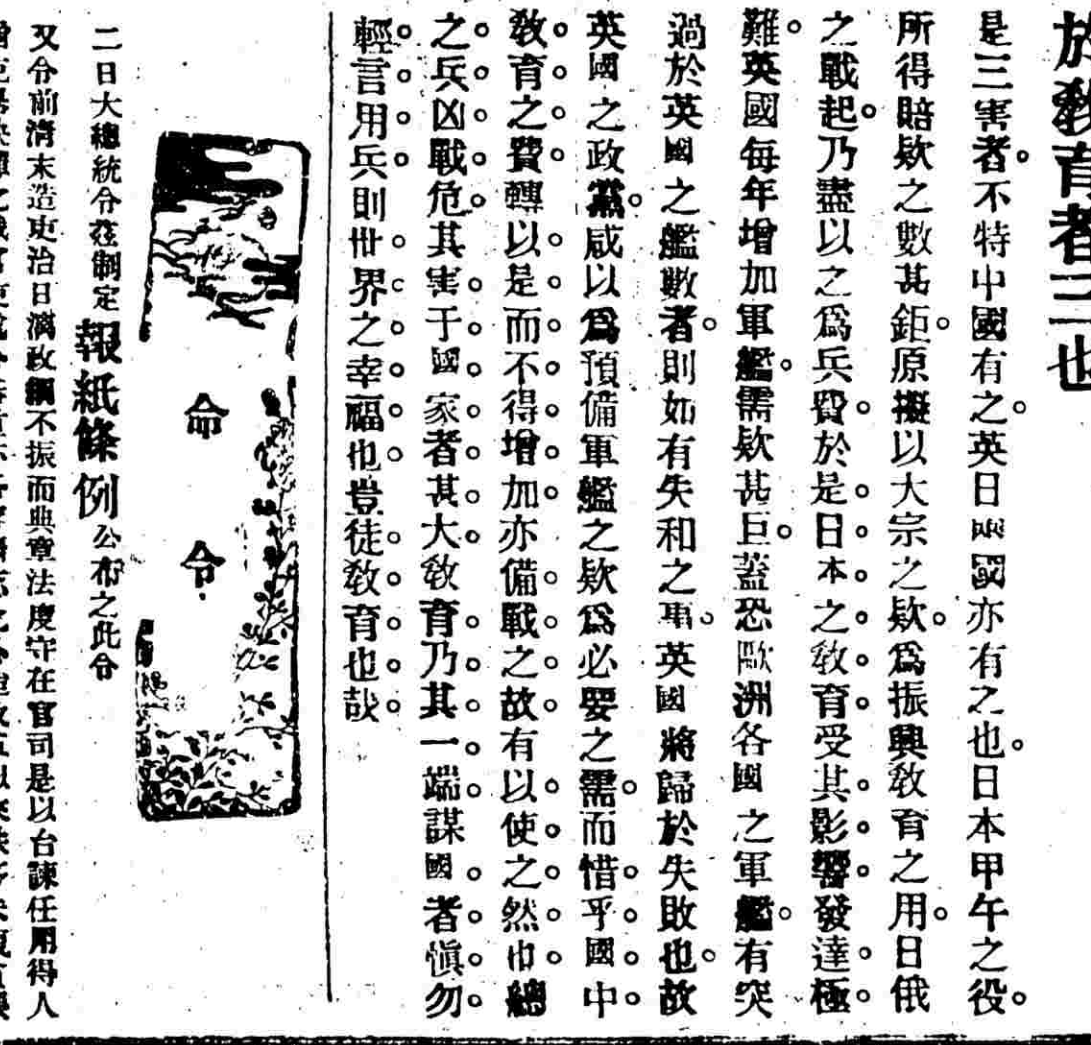 於教育者三也
是三害者。不特中國有之。英日兩國亦有之也。日本甲午之役。
所得賠欵之數甚鉅。原擬以大宗之欵。爲振興教育之用。日俄
之戰起。乃盡以之爲兵費。於是日本之教育受其影響。發達極
難。英國每年增加軍艦。需欵甚巨。蓋恐歐洲各國之軍艦。有突
過於英國之艦數者。則如有失和之事。英國將歸於失敗也。故
英國之政黨。咸以爲預備軍艦之欵。爲必要之需。而惜乎國中
教育之費。轉以是而不得增加。亦備戰之故。有以使之然也。總
之兵凶戰危。其害于國家者甚大。教育乃其一端。謀國者愼勿
輕言用兵。則世界之幸福也。豈徒教育也哉。
命令
二日大總統令茲制定報紙條例公布之此令
又令前清末造吏治日漓政綱不振而典章法度守在官司是以台諫任用得人